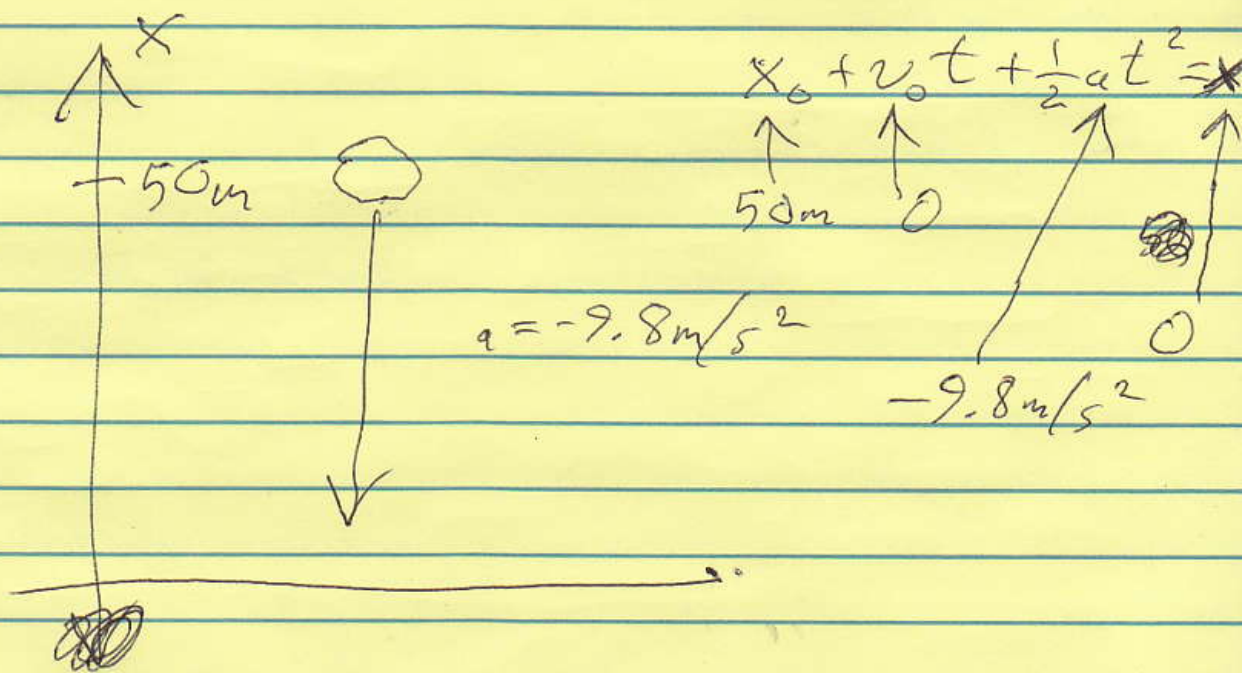 x
50m
x₀ + v₀t + ½at² = x
50m 0
a = -9.8m/s²
0
-9.8m/s²